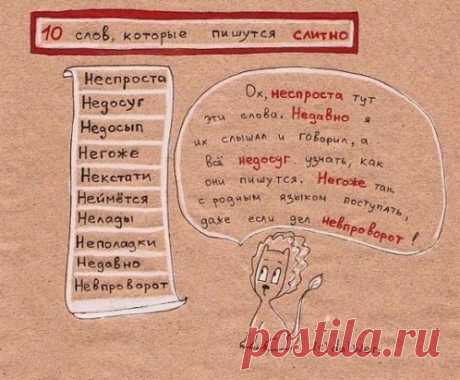 10 слов, которые пишутся слитно
Неспроста
Недосуг
Недосып
Негоже
Некстати
Неймётся
Нелады
Неполадки
Недавно
Невпроворот
Ох, неспроста тут
эти слова. Недавно я
их слышал и говорил, а
всё недосуг узнать, как
они пишутся. Негоже так
с родным языком поступать,
даже если дел невпроворот!
postila.ru